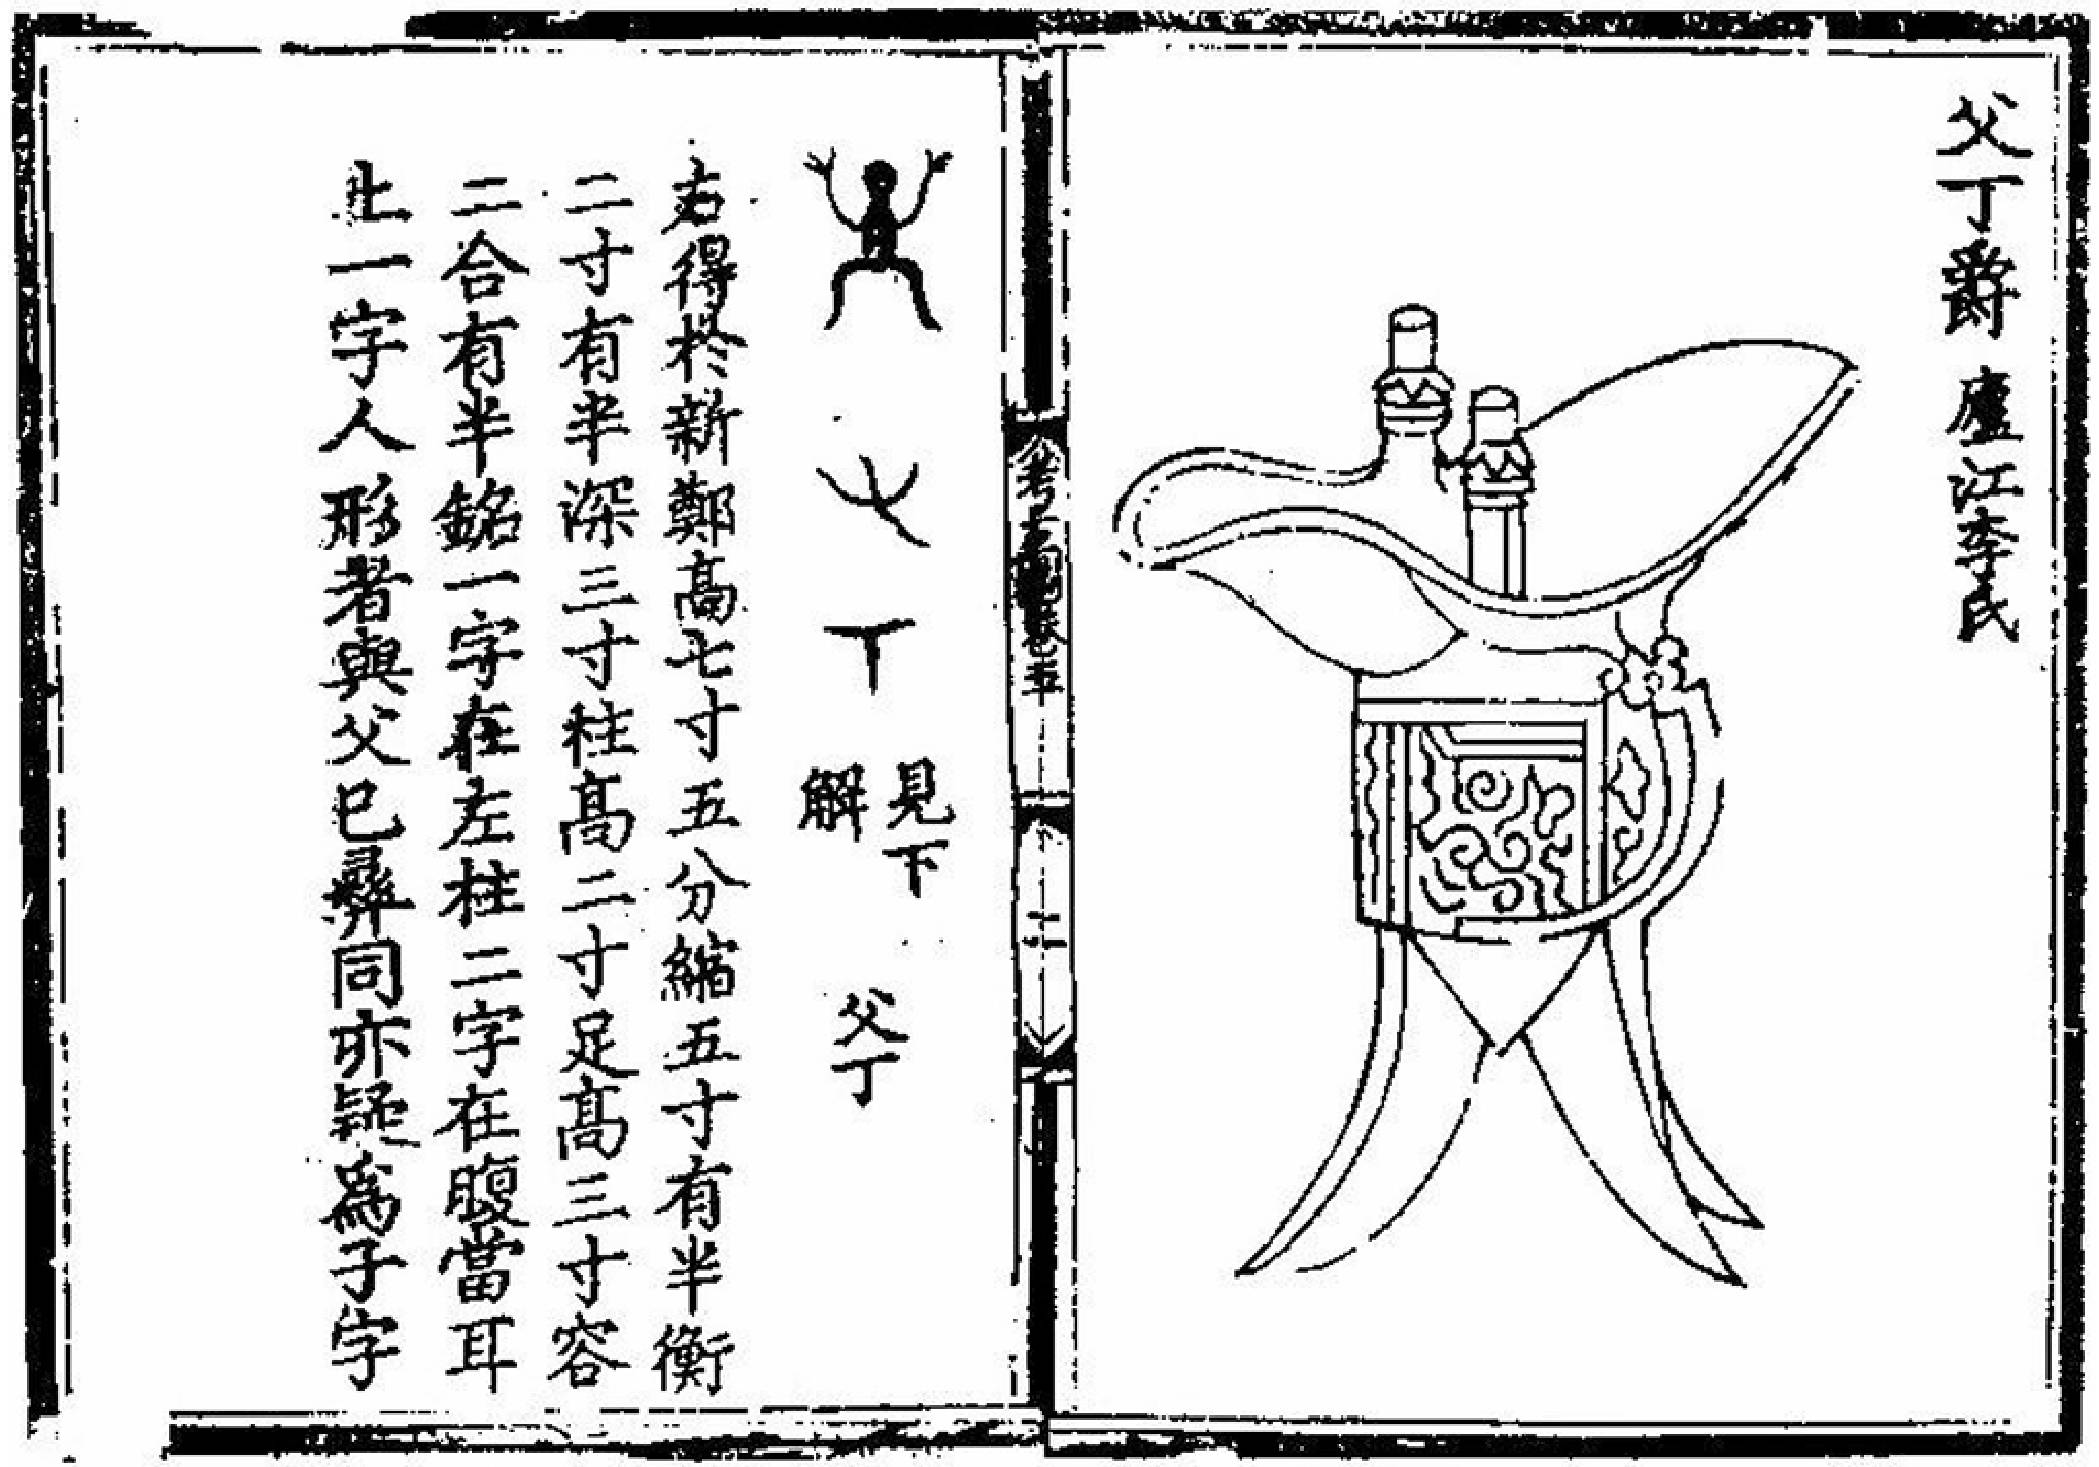 父丁爵 廬江李氏
考古圖卷五
見下
解
父丁
右得於新鄭高七寸五分縮五寸有半衡
二寸有半深三寸柱高二寸足高三寸容
二合有半銘一字在左柱二字在腹當耳
上一字人形者與父已彝同亦疑爲子字